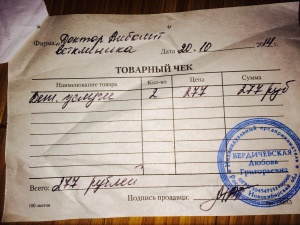 Фирма "Доктор Айболит"
ветклиника Дата 20.10 2014г.
ТОВАРНЫЙ ЧЕК
Наименование товара Кол-во Цена Сумма
Вет. услуги 2 277 277 руб
Всего: 277 рублей
Подпись продавца:
100 листов
БЕРДИЧЕВСКАЯ
Любовь
Григорьевна